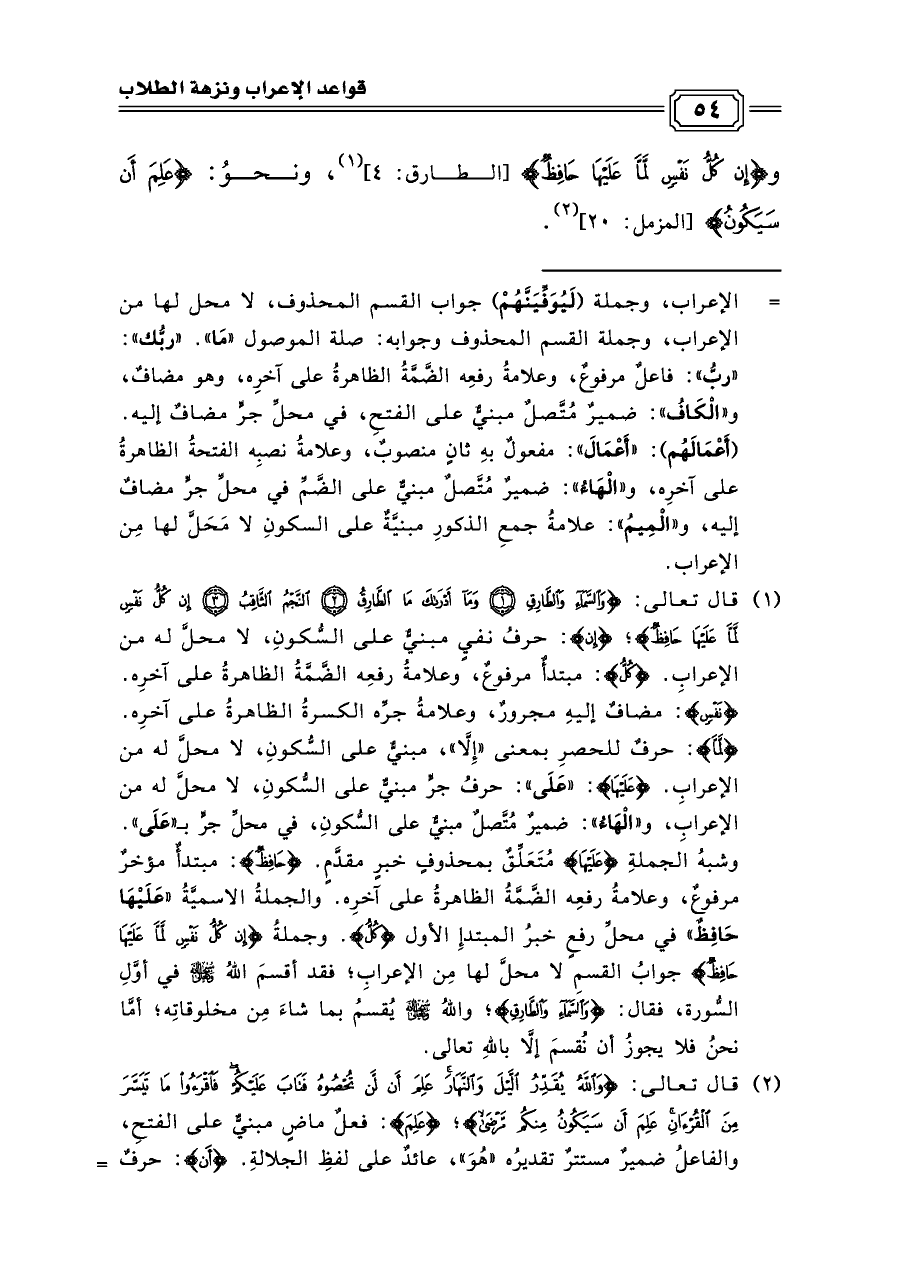 قواعد الإعراب ونزهة الطلاب
٥٤
و﴿إِن كُلُّ نَفْسٍ لَّمَّا عَلَيْهَا حَافِظٌ﴾ [الطارق: ٤](١)، ونحوُ: ﴿عَلِمَ أَن
سَيَكُونُ﴾ [المزمل: ٢٠](٢).
= الإعراب، وجملة (لَيُوَفِّيَنَّهُمْ) جواب القسم المحذوف، لا محل لها من
الإعراب، وجملة القسم المحذوف وجوابه: صلة الموصول «مَا». «ربُّك»:
«ربُّ»: فاعلٌ مرفوعٌ، وعلامةُ رفعِه الضَّمَّةُ الظاهرةُ على آخرِه، وهو مضافٌ،
و«الْكَافُ»: ضميرٌ مُتَّصلٌ مبنيٌّ على الفتحِ، في محلِّ جرٍّ مضافٌ إليه.
(أَعْمَالَهُم): «أَعْمَالَ»: مفعولٌ بهِ ثانٍ منصوبٌ، وعلامةُ نصبِه الفتحةُ الظاهرةُ
على آخرِه، و«الْهَاءُ»: ضميرٌ مُتَّصلٌ مبنيٌّ على الضَّمِّ في محلِّ جرٍّ مضافٌ
إليه، و«الْمِيمُ»: علامةُ جمعِ الذكورِ مبنيَّةٌ على السكونِ لا مَحَلَّ لها مِن
الإعرابِ.
(١) قال تعالى: ﴿وَٱلسَّمَآءِ وَٱلطَّارِقِ ١ وَمَآ أَدْرَىٰكَ مَا ٱلطَّارِقُ ٢ ٱلنَّجْمُ ٱلثَّاقِبُ ٣ إِن كُلُّ نَفْسٍ
لَّمَّا عَلَيْهَا حَافِظٌ﴾؛ ﴿إِن﴾: حرفُ نفيٍ مبنيٌّ على السُّكونِ، لا محلَّ له من
الإعرابِ. ﴿كُلُّ﴾: مبتدأٌ مرفوعٌ، وعلامةُ رفعِه الضَّمَّةُ الظاهرةُ على آخرِه.
﴿نَفْسٍ﴾: مضافٌ إليهِ مجرورٌ، وعلامةُ جرِّه الكسرةُ الظاهرةُ على آخرِه.
﴿لَّمَّا﴾: حرفٌ للحصرِ بمعنى «إِلَّا»، مبنيٌّ على السُّكونِ، لا محلَّ له من
الإعرابِ. ﴿عَلَيْهَا﴾: «عَلَى»: حرفُ جرٍّ مبنيٌّ على السُّكونِ، لا محلَّ له من
الإعرابِ، و«الْهَاءُ»: ضميرٌ مُتَّصلٌ مبنيٌّ على السُّكونِ، في محلِّ جرٍّ بـ«عَلَى».
وشبهُ الجملةِ ﴿عَلَيْهَا﴾ مُتَعَلِّقٌ بمحذوفٍ خبرٍ مقدَّمٍ. ﴿حَافِظٌ﴾: مبتدأٌ مؤخرٌ
مرفوعٌ، وعلامةُ رفعِه الضَّمَّةُ الظاهرةُ على آخرِه. والجملةُ الاسميَّةُ «عَلَيْهَا
حَافِظٌ» في محلِّ رفعٍ خبرُ المبتدإِ الأول ﴿كُلُّ﴾. وجملةُ ﴿إِن كُلُّ نَفْسٍ لَّمَّا عَلَيْهَا
حَافِظٌ﴾ جوابُ القسمِ لا محلَّ لها مِن الإعرابِ؛ فقد أقسمَ اللهُ ﷻ في أوَّلِ
السُّورة، فقال: ﴿وَٱلسَّمَآءِ وَٱلطَّارِقِ﴾؛ واللهُ ﷻ يُقسمُ بما شاءَ مِن مخلوقاتِه؛ أمَّا
نحنُ فلا يجوزُ أن نُقسمَ إلَّا باللهِ تعالى.
(٢) قال تعالى: ﴿وَٱللَّهُ يُقَدِّرُ ٱلَّيْلَ وَٱلنَّهَارَۚ عَلِمَ أَن لَّن تُحْصُوهُ فَتَابَ عَلَيْكُمْۖ فَٱقْرَءُوا۟ مَا تَيَسَّرَ
مِنَ ٱلْقُرْءَانِۚ عَلِمَ أَن سَيَكُونُ مِنكُم مَّرْضَىٰۙ﴾؛ ﴿عَلِمَ﴾: فعلٌ ماضٍ مبنيٌّ على الفتحِ،
والفاعلُ ضميرٌ مستترٌ تقديرُه «هُوَ»، عائدٌ على لفظِ الجلالةِ. ﴿أَن﴾: حرفٌ =